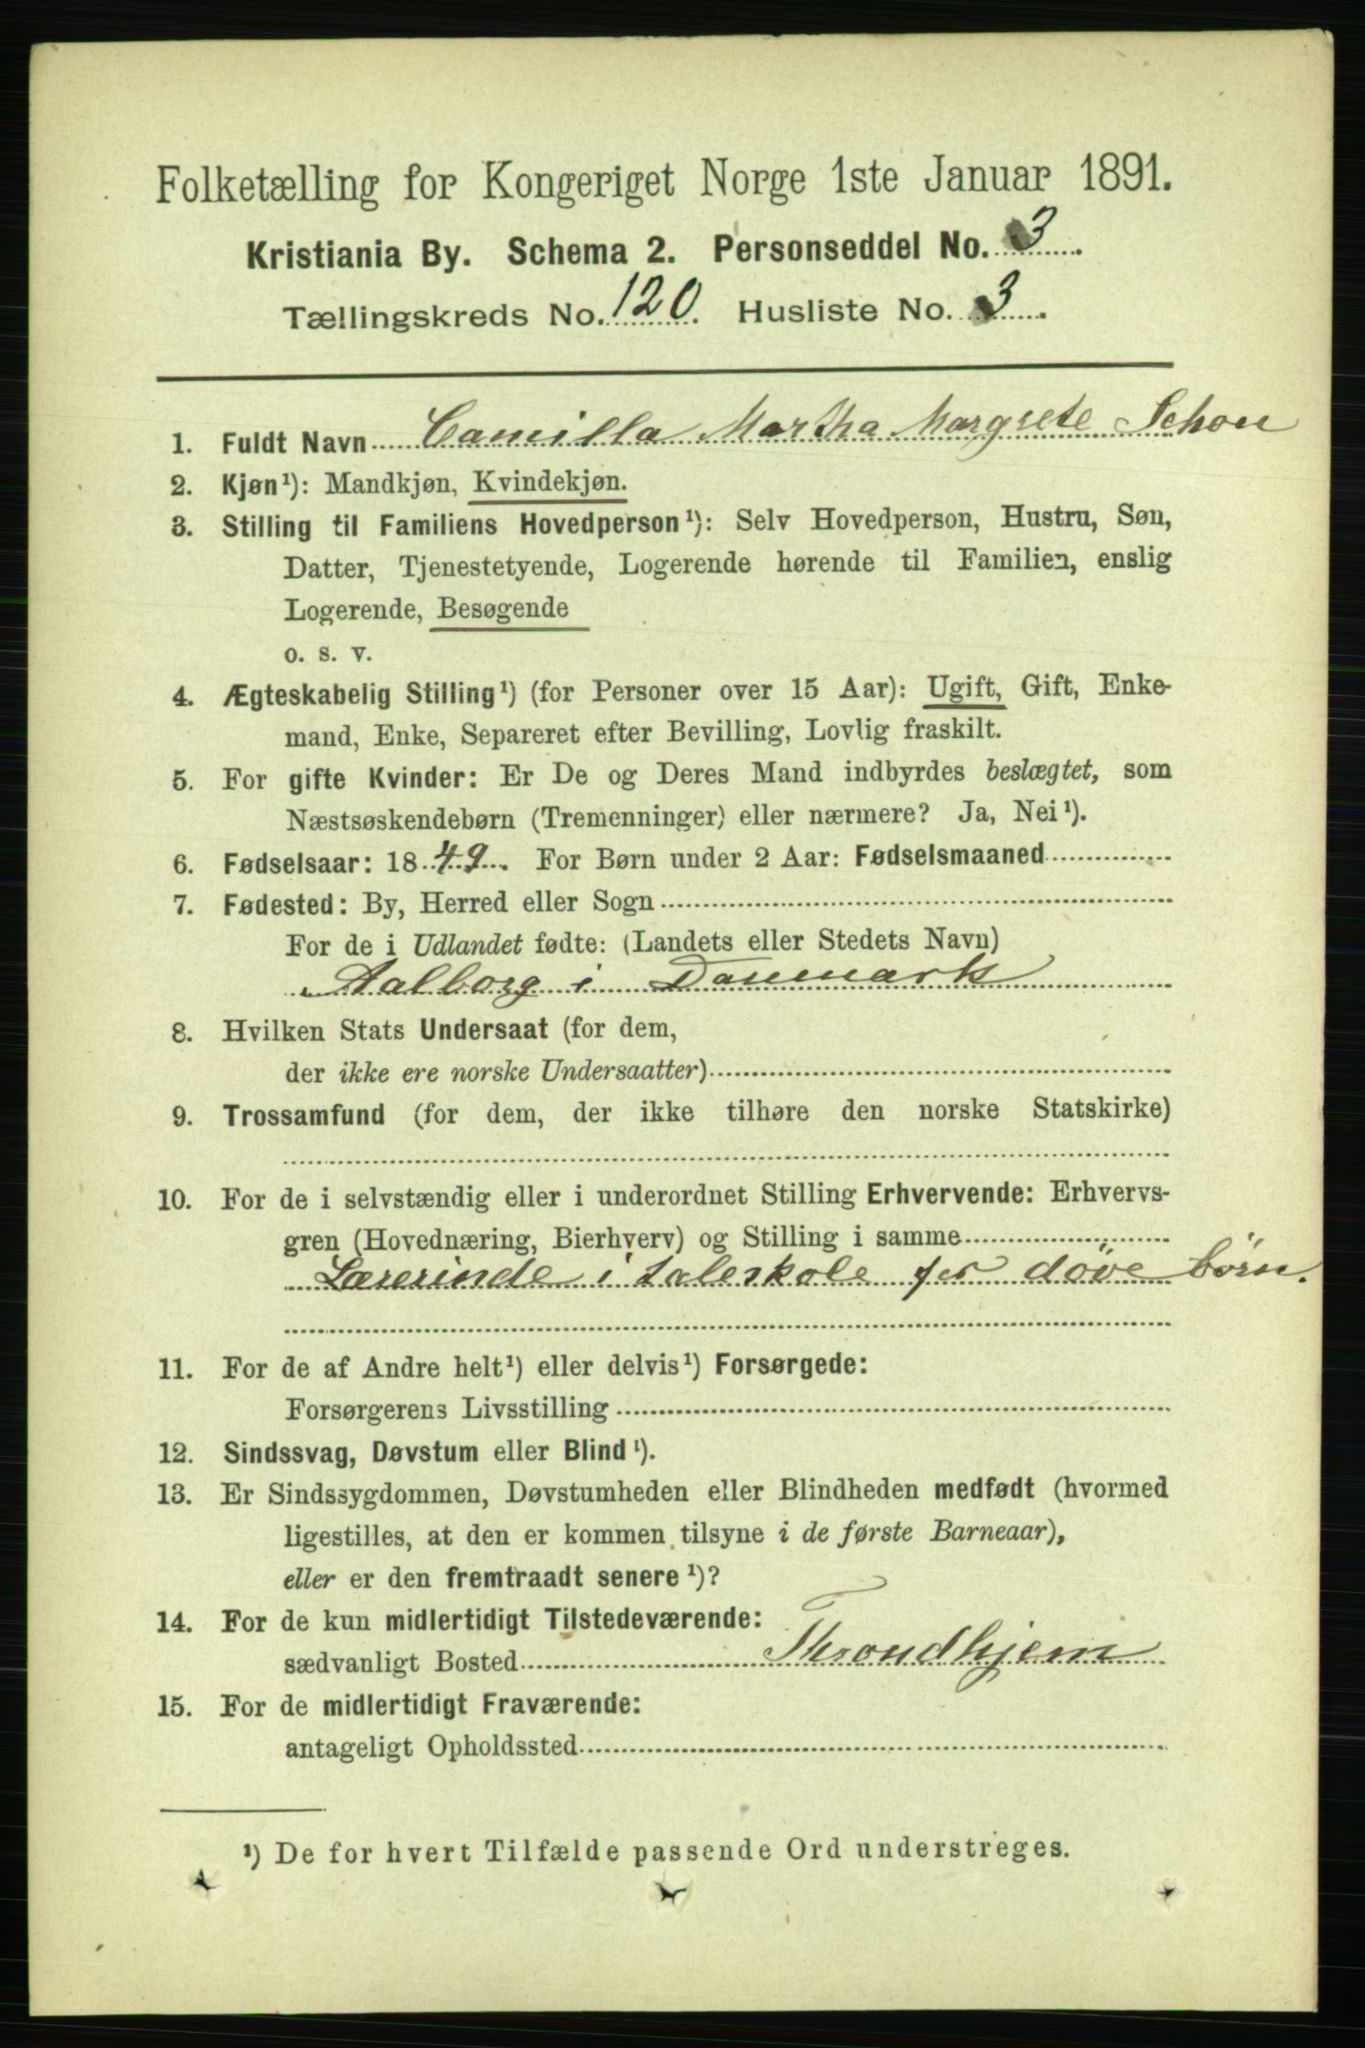 Folketælling for Kongeriget Norge 1ste Januar 1891.
Kristiania By. Schema 2. Personseddel No. 3.
Tællingskreds No. 120. Husliste No. 3.
1. Fuldt Navn Camilla Martha Margrete Schou
2. Kjøn¹): Mandkjøn, Kvindekjøn.
3. Stilling til Familiens Hovedperson¹): Selv Hovedperson, Hustru, Søn,
Datter, Tjenestetyende, Logerende hørende til Familien, enslig
Logerende, Besøgende
o. s. v.
4. Ægteskabelig Stilling¹) (for Personer over 15 Aar): Ugift, Gift, Enke-
mand, Enke, Separeret efter Bevilling, Lovlig fraskilt.
5. For gifte Kvinder: Er De og Deres Mand indbyrdes beslægtet, som
Næstsøskendebørn (Tremenninger) eller nærmere? Ja, Nei¹).
6. Fødselsaar: 1849. For Børn under 2 Aar: Fødselsmaaned
7. Fødested: By, Herred eller Sogn
For de i Udlandet fødte: (Landets eller Stedets Navn)
Aalborg i Danmark
8. Hvilken Stats Undersaat (for dem,
der ikke ere norske Undersaatter)
9. Trossamfund (for dem, der ikke tilhøre den norske Statskirke)
10. For de i selvstændig eller i underordnet Stilling Erhvervende: Erhvervs-
gren (Hovednæring, Bierhverv) og Stilling i samme
Lærerinde i taleskole for döve börn.
11. For de af Andre helt¹) eller delvis¹) Forsørgede:
Forsørgerens Livsstilling
12. Sindssvag, Døvstum eller Blind¹).
13. Er Sindssygdommen, Døvstumheden eller Blindheden medfødt (hvormed
ligestilles, at den er kommen tilsyne i de første Barneaar),
eller er den fremtraadt senere¹)?
14. For de kun midlertidigt Tilstedeværende:
sædvanligt Bosted Throndhjem
15. For de midlertidigt Fraværende:
antageligt Opholdssted
¹) De for hvert Tilfælde passende Ord understreges.